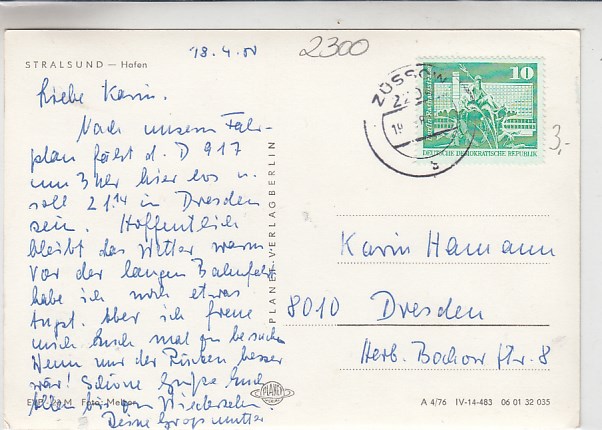 18.4.
2300
STRALSUND — Hafen
Liebe Karin.
Nach unserem Fahr-
plan fährt d. D 917
um 3 Uhr hier los u.
soll 21.14 in Dresden
sein. Hoffentlich
bleibt das Wetter warm
Vor der langen Bahnfahrt
habe ich noch etwas
Angst. Aber ich freue
mich Euch mal zu besuchen
Wenn nur der Rücken besser
wär! Schöne Grüße Euch
Allen bis zum Wiedersehen.
Deine Großmutter
PLANET-VERLAG BERLIN
ZÜSSOW
10
DEUTSCHE DEMOKRATISCHE REPUBLIK
3,-
Karin Hamann
8010 Dresden
Herb. Bochow Str. 8
Foto:
PLANET
A 4/76 IV-14-483 06 01 32 035